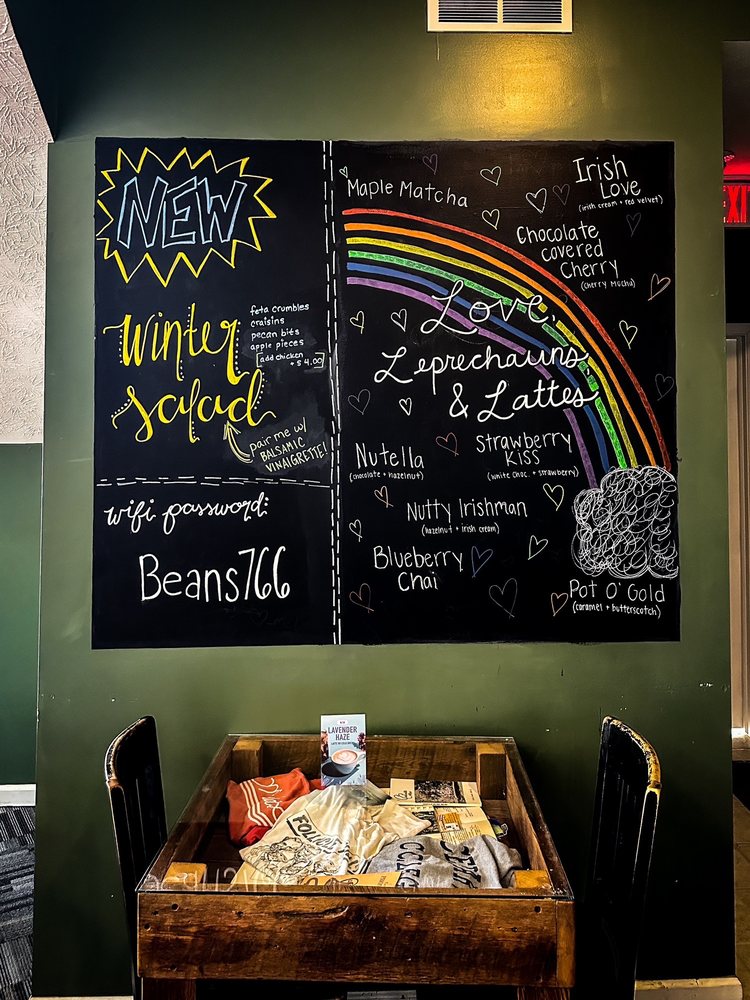 NEW
Winter
Salad
feta crumbles
craisins
pecan bits
apple pieces
add chicken
+ $4.00
pair me w/
BALSAMIC
VINAIGRETTE!
wifi password:
Beans766
Maple Matcha
Irish
Love
(irish cream + red velvet)
Chocolate
covered
Cherry
(cherry mocha)
Love,
Leprechauns,
& Lattes
Nutella
(chocolate + hazelnut)
Strawberry
Kiss
(white choc. + strawberry)
Nutty Irishman
(hazelnut + irish cream)
Blueberry
Chai
Pot O' Gold
(caramel + butterscotch)
EXIT
LAVENDER
HAZE